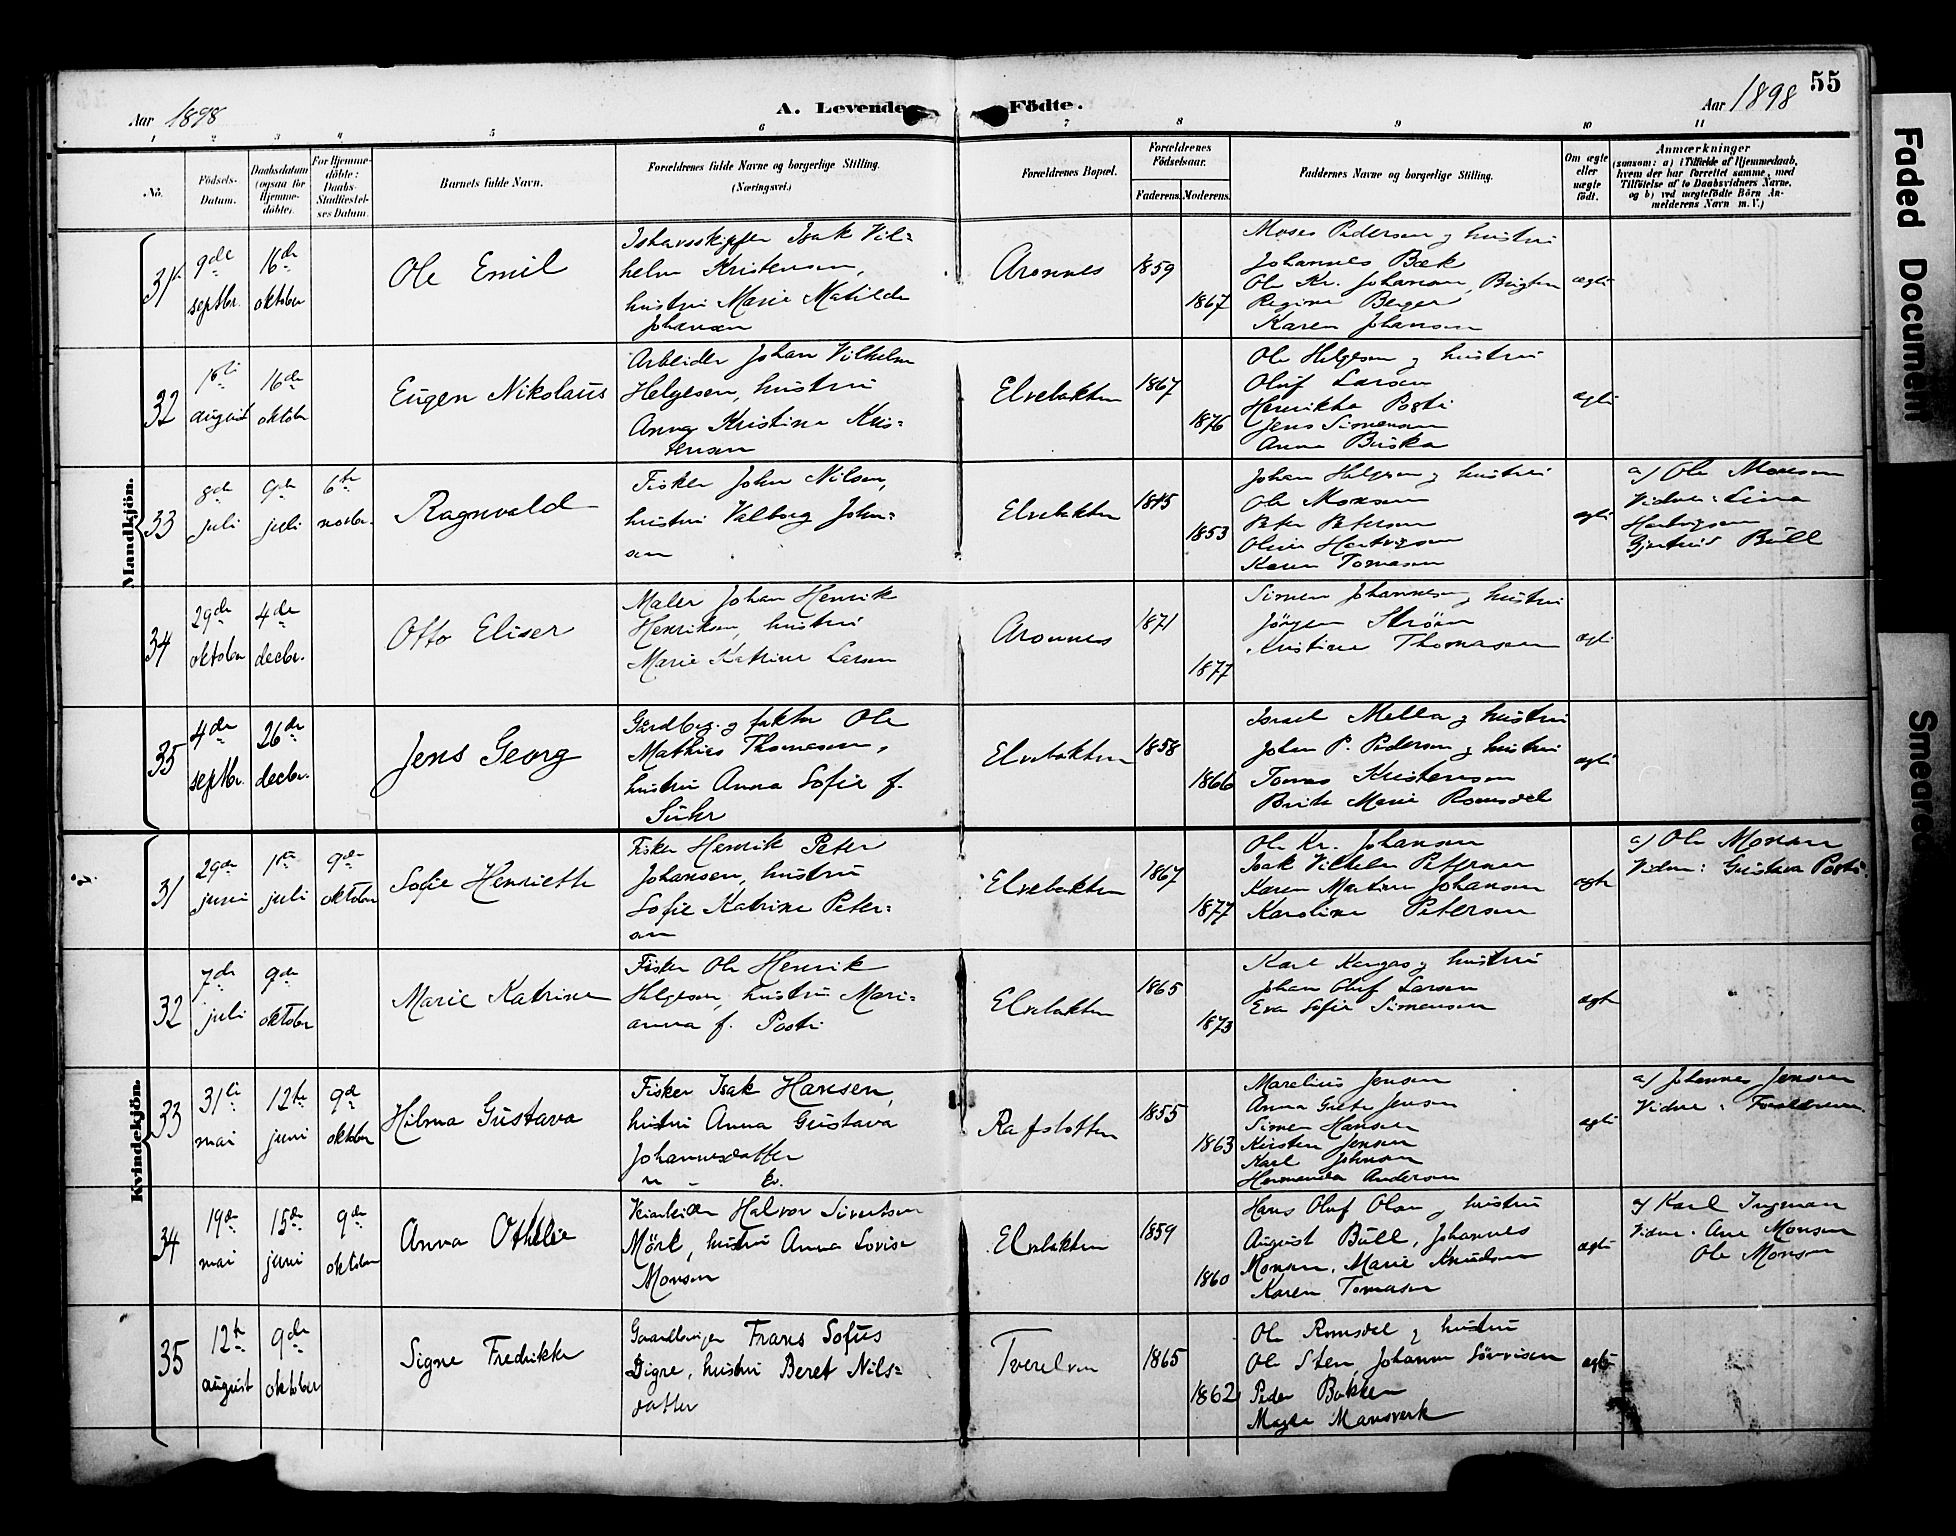 55
Aar 1898
A. Levende Födte.
Aar 1898
1 2 3 4 5 6 7 8 9 10 11
No.
Födsels-Datum.
Daabsdatum (ogsaa for Hjemme-döbte).
For Hjemme-döbte: Daabs-Stadfæstel-ses Datum.
Barnets fulde Navn.
Forældrenes fulde Navne og borgerlige Stilling. (Næringsvei.)
Forældrenes Bopæl.
Forældrenes Födselsaar.
Faderens. Moderens.
Faddernes Navne og borgerlige Stilling.
Om ægte eller uægte födt.
Anmærkninger
(saasom: a) i Tilfælde af Hjemmedaab, hvem der har forrettet samme, med Tilföielse af to Daabsvidners Navne, og b) ved uægtefödte Börn An-melderens Navn m. V.)
Mandkjön.
31
9de septbr.
16de oktober
Ole Emil
Ishavsskipper Isak Vil=
helm Kristensen,
hustru Marie Matilde
Johansen
Aronnes
1859
1867
Moses Pedersen og hustru
Johannes Bæk
Ole Kr. Johansen,
Regine Berger
Karen Johansen
ægte
32
august
16de oktober
Eugen Nikolaus
Arbeider Johan Vilhelm
Helgesen, hustru
Anna Kristine Kris=
tensen
Elvebakken
1867
1876
Ole Helgesen og hustru
Oluf Larsen
Henrikke Posti
Jens Simensen
Anna Buska
ægte
33
8de juli
9de juli
6te novbr.
Ragnvald
Fisker John Nilsen,
hustru Valborg John=
sen
Elvebakken
1845
1853
Johan Helgesen og hustru
Ole Monsen
Peter Petersen
Olina Hartvigsen
Karen Tomasen
ægte
a) Ole Monsen
Vidner: Lina
Hartvigsen
Gjertrud Bull
34
29de oktober
4de decbr.
Otto Eliser
Maler Johan Henrik
Henriksen, hustru
Marie Katrine Larsen
Aronnes
1871
1877
Simen Johannesen og hustru
Jörgen Ström
Kristine Thomasen
ægte
35
4de septbr.
26de decbr.
Jens Georg
Gårdbrg. og faktor Ole
Mathies Thomesen,
hustru Anna Sofie f.
Suhr
Elvebakken
1858
1866
Israel Mella og hustru
John P. Pedersen og hustru
Tomas Kristensen
Brith Marie Romsdal
ægte
Kvindekjön.
31
29de juni
1ste juli
9de oktober
Sofie Henriette
Fisker Henrik Peter
Johansen, hustru
Sofie Katrine Peter=
sen
Elvebakken
1867
1877
Ole Kr. Johansen
Isak Vilhelm Pettersen
Karen Martine Johansen
Karoline Petersen
ægte
a) Ole Monsen
Vidne: Gustava Posti
32
7de juli
9de oktober
Marie Katrine
Fisker Ole Henrik
Helgesen, hustru Mari=
anna f. Posti
Elvebakken
1865
1873
Karl Kangas og hustru
Johan Oluf Larsen
Eva Sofie Simensen
ægte
33
31te mai
12te juni
9de oktober
Hilma Gustava
Fisker Isak Hansen,
hustru Anna Gustava
Johannesdatter
Rafsbotten
1855
1863
Marelius Jensen
Anna Grete Jensen
Simen Hansen
Kirsten Jensen
Karl Johnsen
Hermanda Andersen
ægte
a) Johannes Jensen
Vidne: Forældrene
34
19de mai
15de juni
9de oktober
Anna Othelie
Halvor Sivertsen
Mörk, hustru Anna Lovise
Monsen
Elvebakken
1859
1860
Hans Oluf Olsen og hustru
August Bull, Johannes
Monsen, Marie Knudsen
Karen Tomasen
ægte
a) Karl Ingman
Vidne: Ane Monsen
Ole Monsen
35
12te august
9de oktober
Signe Fredrikke
Gaardbruger Frans Sofus
Digre, hustru Beret Nils=
datter
Tverelven
1865
1862
Ole Romsdal og hustru
Ole Sten, Johanna Sörrisen
Peder Bakken
Magda Mansverk
ægte
Faded Document
Smeared